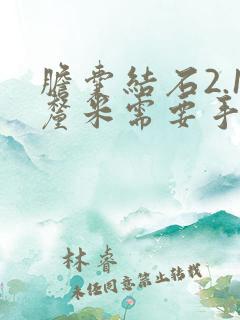 膽囊結石2.1
釐米需要手
林睿
未经同意禁止转载